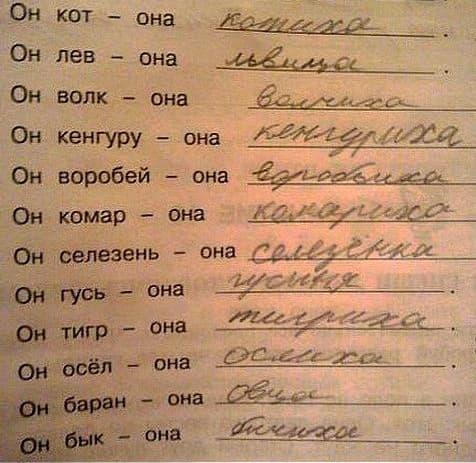 Он кот – она котиха.
Он лев – она львица.
Он волк – она волчиха
Он кенгуру – она кенгуриха
Он воробей – она воробьиха
Он комар – она комариха
Он селезень – она селезёнка
Он гусь – она гусыня
Он тигр – она тигриха.
Он осёл – она ослиха.
Он баран – она овца.
Он бык – она бичиха.